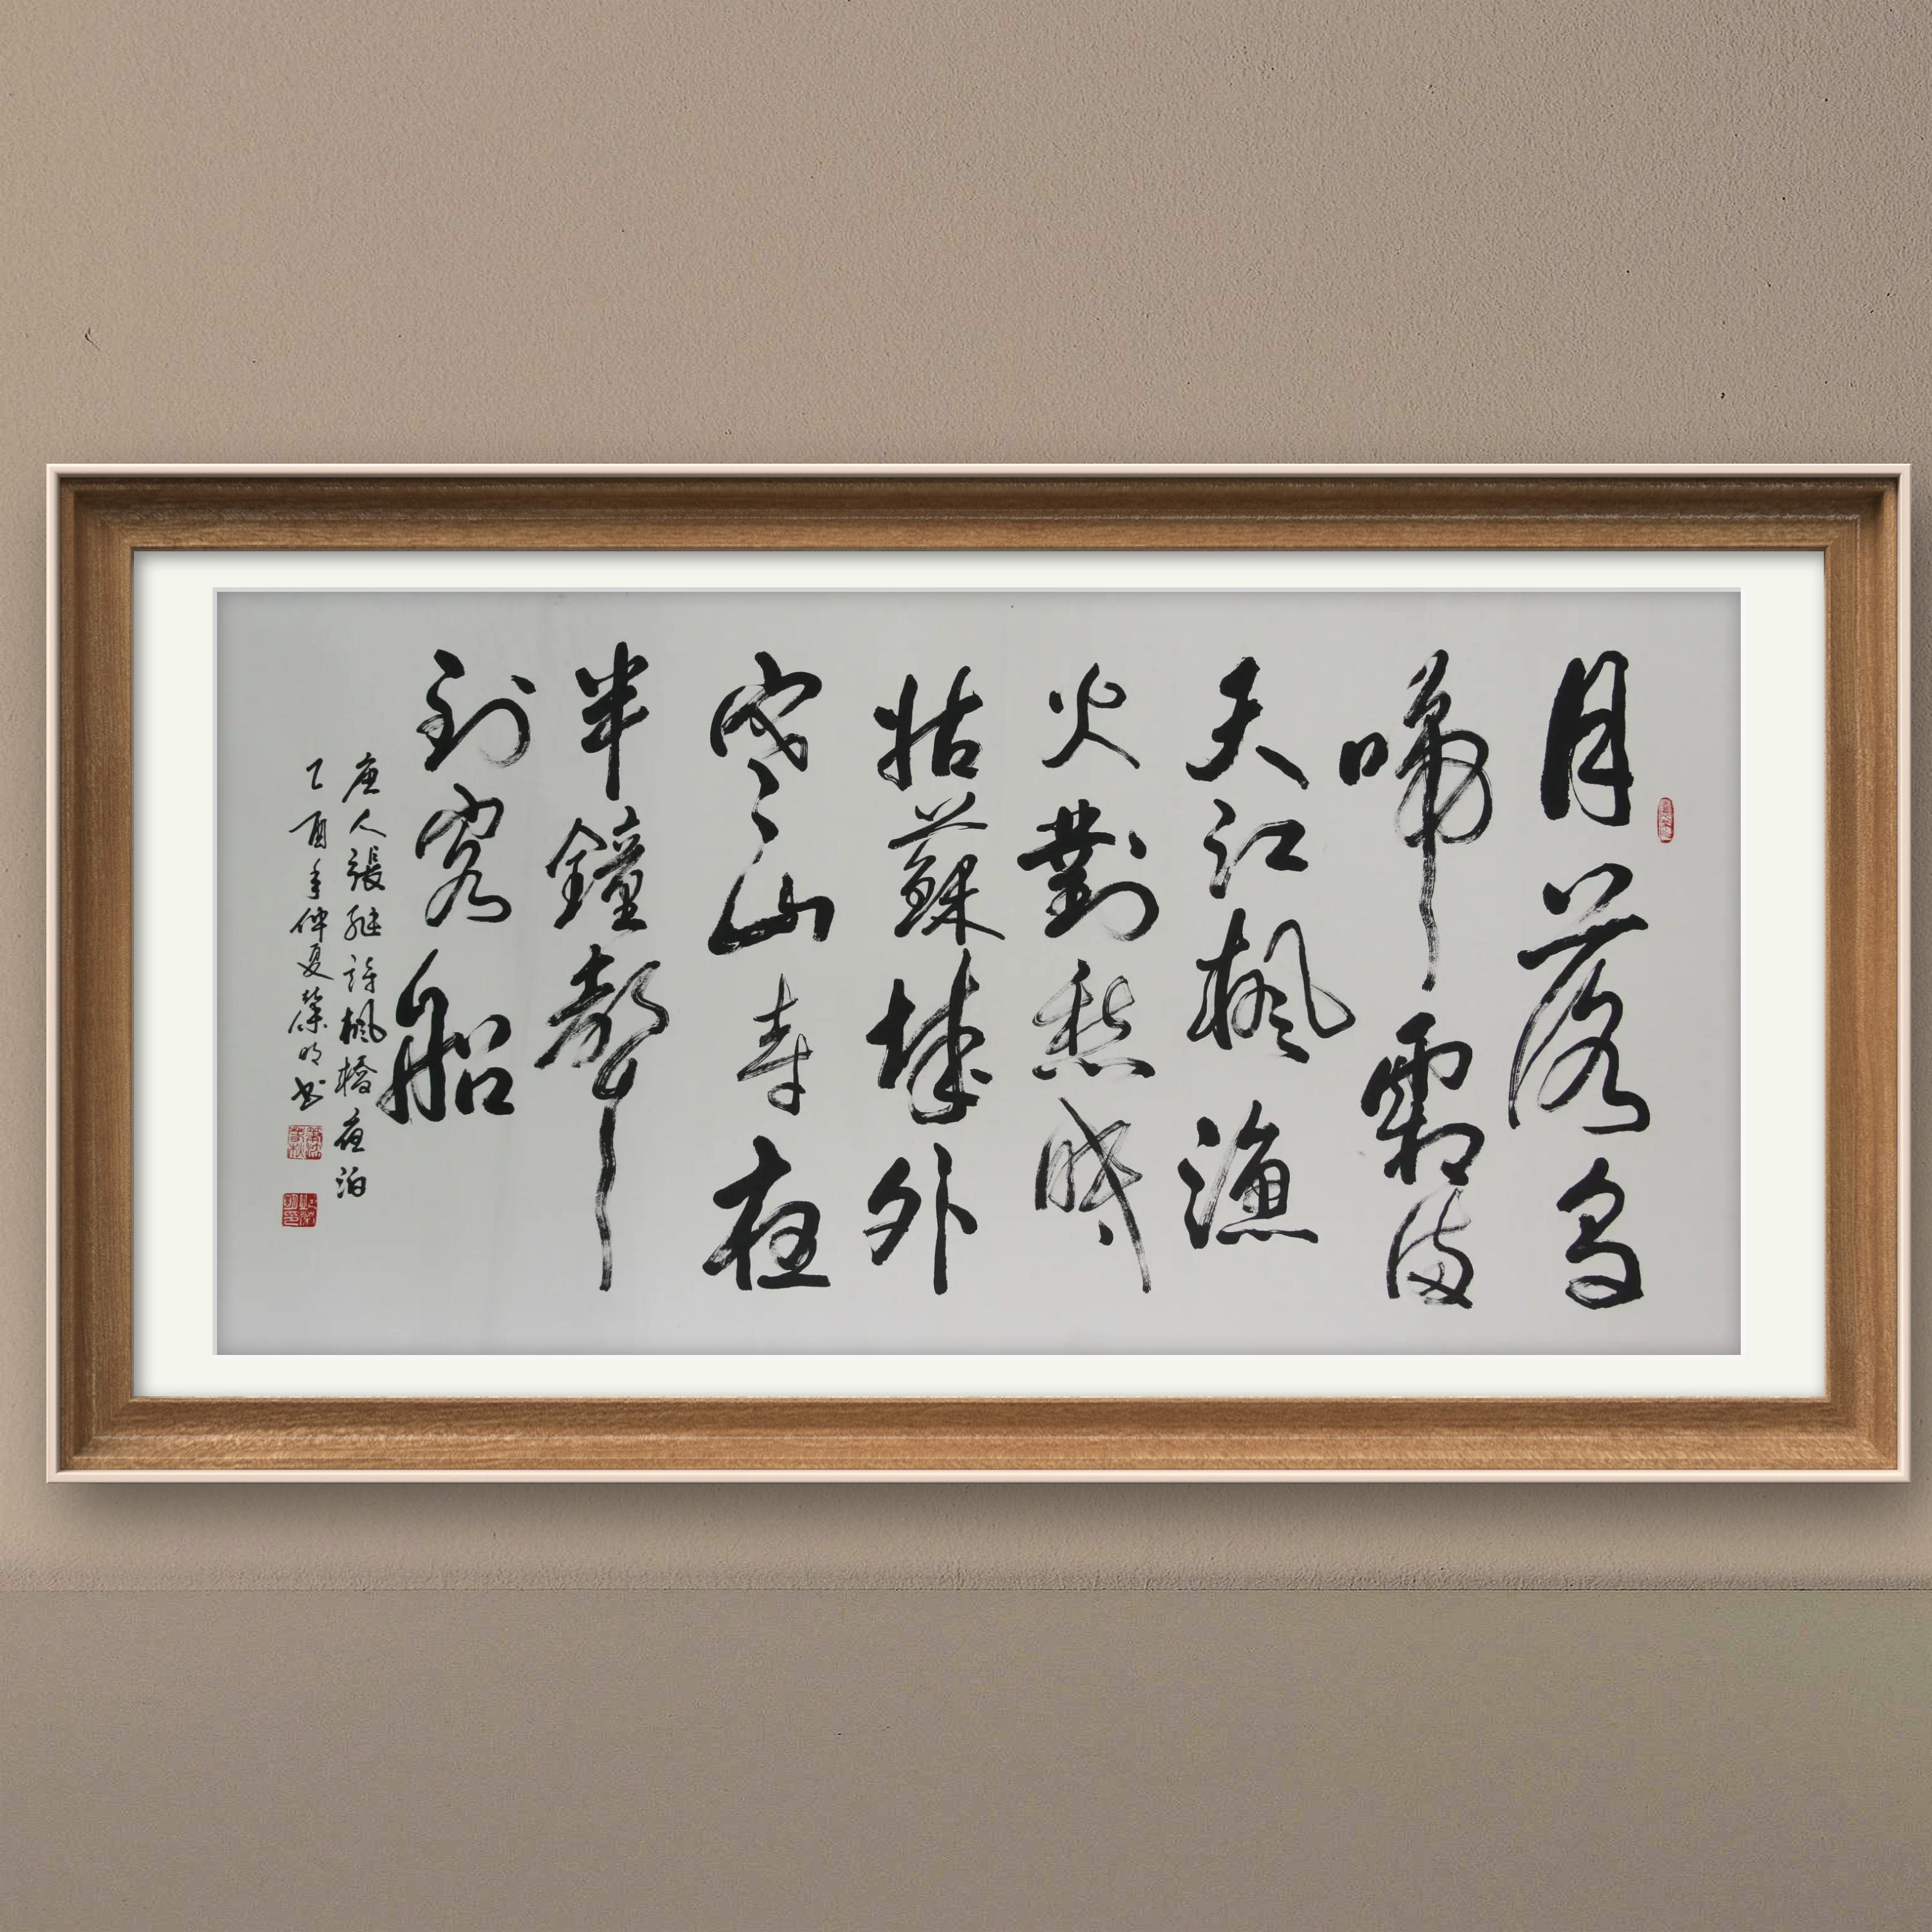 月落烏
啼霜滿
天江楓漁
火對愁眠
姑蘇城外
寒山寺夜
半鐘聲
到客船
唐人張继詩楓橋夜泊
乙酉年仲夏榮明书